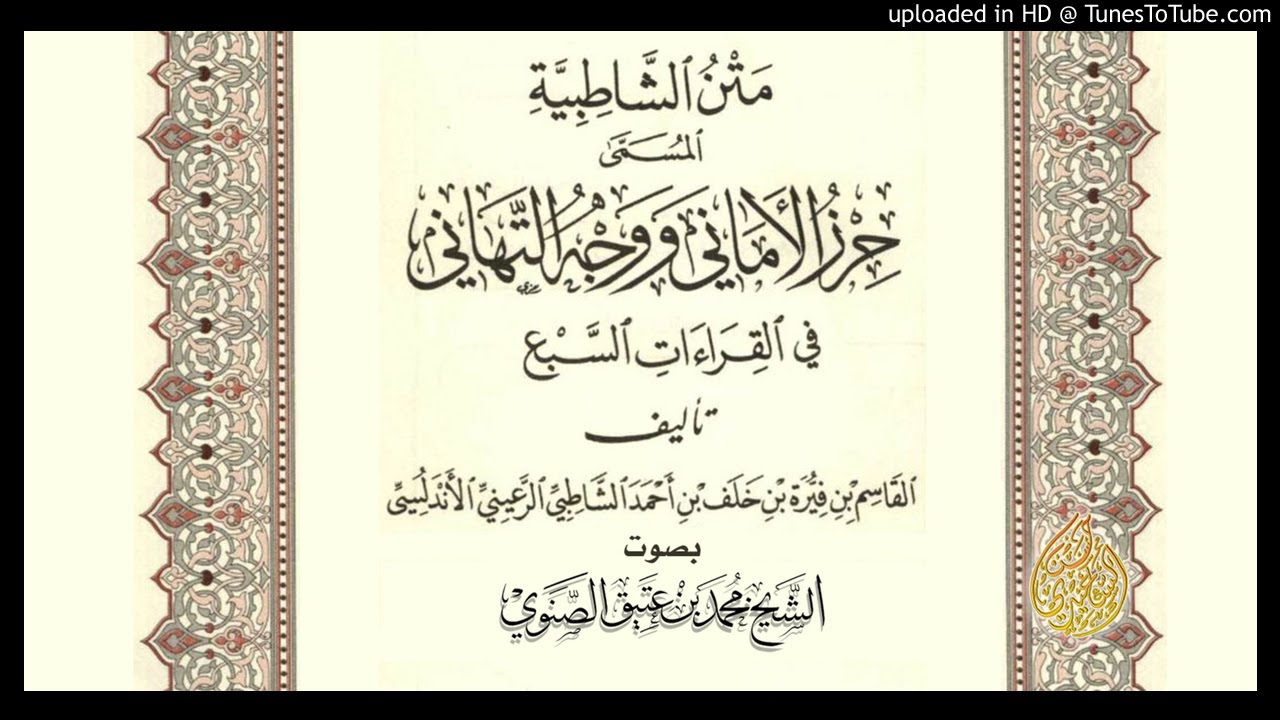 uploaded in HD @ TunesToTube.com
مَتْنُ ٱلشَّاطِبِيَّةِ
ٱلْمُسَمَّىٰ
حِرْزُ ٱلْأَمَانِي وَوَجْهُ ٱلتَّهَانِي
فِي ٱلْقِرَاءَاتِ ٱلسَّبْعِ
تأليف
ٱلقَاسِم بْنِ فِيُّرَّة بْنِ خَلَف بْنِ أَحْمَدَ ٱلشَّاطِبِيِّ ٱلرَّعِينِيِّ ٱلأَنْدَلُسِيِّ
بصوت
الشَّيْخ مُحَمَّد بْن عَتِيق الصَّنَوِيّ